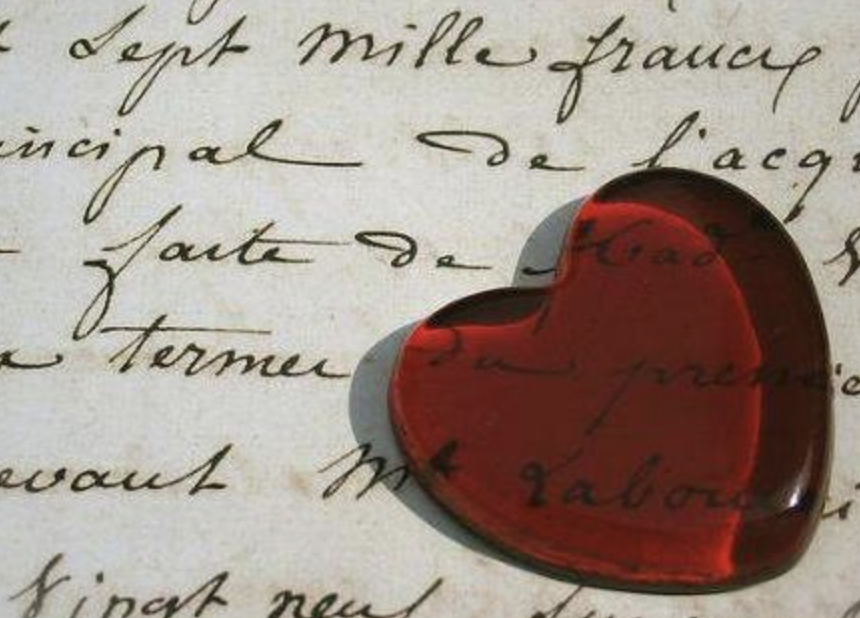 Sept mille francs
incipal de l'acqu
faite de Mad
termes du premie
evant Mt Labou
Vingt neuf